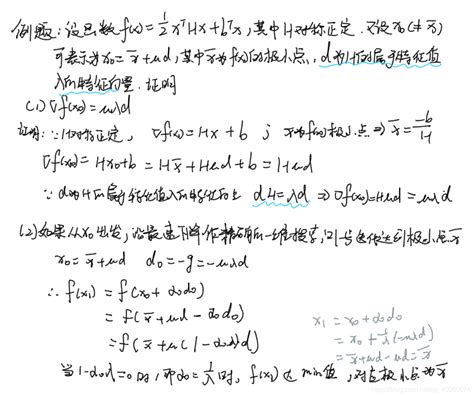 例题：设函数 f(x)=½xᵀHx+bᵀx，其中H对称正定．又设x₀(≠x̄)
可表示为x₀=x̄+μd，其中x̄为f(x)的极小点，d为H的属于特征值
λ的特征向量．证明
(1) ∇f(x₀)=μλd
证明：∵H对称正定，∇f(x)=Hx+b；x̄为f(x)极小点⇒x̄=-b/H
∇f(x₀)=Hx₀+b=Hx̄+Hμd+b=Hμd
∵d为H的属于特征值λ的特征向量 dH=λd ⇒∇f(x₀)=Hμd=μλd
(2)如果从x₀出发，沿最速下降作精确的一维搜索，则一步达到极小点x̄
x₀=x̄+μd d₀=-g=-μλd
∴f(x₁)=f(x₀+α₀d₀)
=f(x̄+μd-α₀d₀)
=f(x̄+μ(1-α₀λ)d)
x₁=x₀+α₀d₀
=x₀+1/λ(-μλd)
=x̄+μd-μd=x̄
当1-α₀λ=0时，即α₀=1/λ时，f(x₁)达min值，对应极小点为x̄